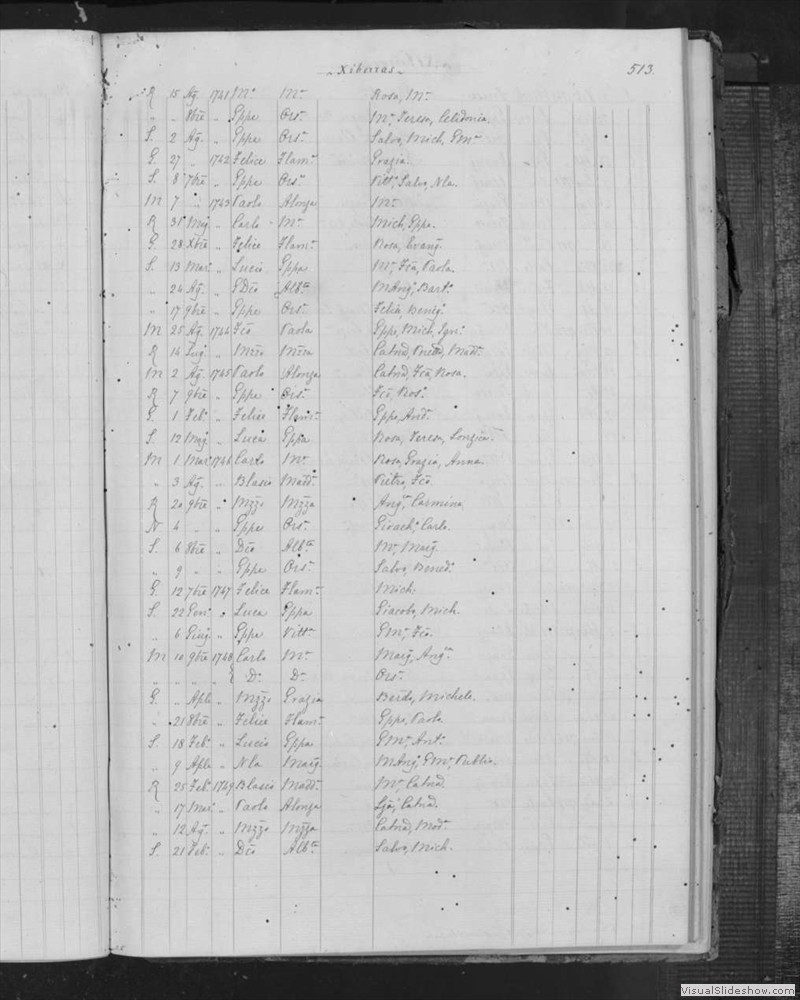 Xiberras
513.
R 15 Ag. 1741 Mo Ma Rosa, Ma
" " 8bre " Gppe Orsa Ma, Teresa, Celidonia
S. 2 Ag. " Gppe Orsa Salvo, Mich, GMa
G. 27 " 1742 Felice Flama Grazia
S. 8 7bre " Gppe Orsa Vitta, Salvo, Nla
M 7 " 1743 Paolo Alonza Ma
R 31 Mag " Carlo Ma Mich, Gppe
G. 28 Xbre " Felice Flama Rosa, Evang.
S. 13 Mar. " Lucio Gppa Ma, Fca, Paola
" 24 Ag. " GDco Alba MAnga, Barta
" 17 9bre " Gppe Orsa Felia, Benig.
M 25 Ag. 1744 Fco Paola Gppe, Mich, Igna
R 14 Lug. " Mzzo Mzza Catnd,
M 2 Ag. 1745 Paolo Alonza Catnd, Fca, Rosa
R 7 9bre " Gppe Orsa Fco, Rosa
G. 1 Feb. " Felice Flama Gppe, And.
S. 12 Mag " Luca Gppa Rosa, Teresa, Longina
M 1 Mar. 1746 Carlo Ma Rosa, Grazia, Anna
" 3 Ag. " Blasio Matta Pietro, Fco
R 20 9bre " Mzzo Mzza Anga, Carmina
N 4 " " Gppe Orsa Gioach, Carlo
S. 6 8bre " Dco Alba Ma, Marg.
" 9 " " Gppe Orsa Salvo, Bened.
G. 12 7bre 1747 Felice Flama Mich
S. 22 Gen. " Luca Gppa Giacobo, Mich.
" 6 Giug " Gppe Vitta GMa, Fco
M 10 9bre 1748 Carlo Ma Marg, Anga
" " " " D. D. Orsa
G. " Aple " Mzzo Grazia Berdo, Michele
" 21 8bre " Felice Flama Gppe, Paola
S. 18 Feb. " Lucio Gppa GMa, Anta
" 9 Aple " Nla Marg MAng, GMa, Publio
R 25 Feb. 1749 Blasio Matta Ma, Catnd
" 17 Mar. " Paolo Alonza Catnd.
" 12 Ag. " Mzzo Mzza Catnd, Moda
S. 21 Feb. " Dco Alba Salvo, Mich.
VisualSlideshow.com